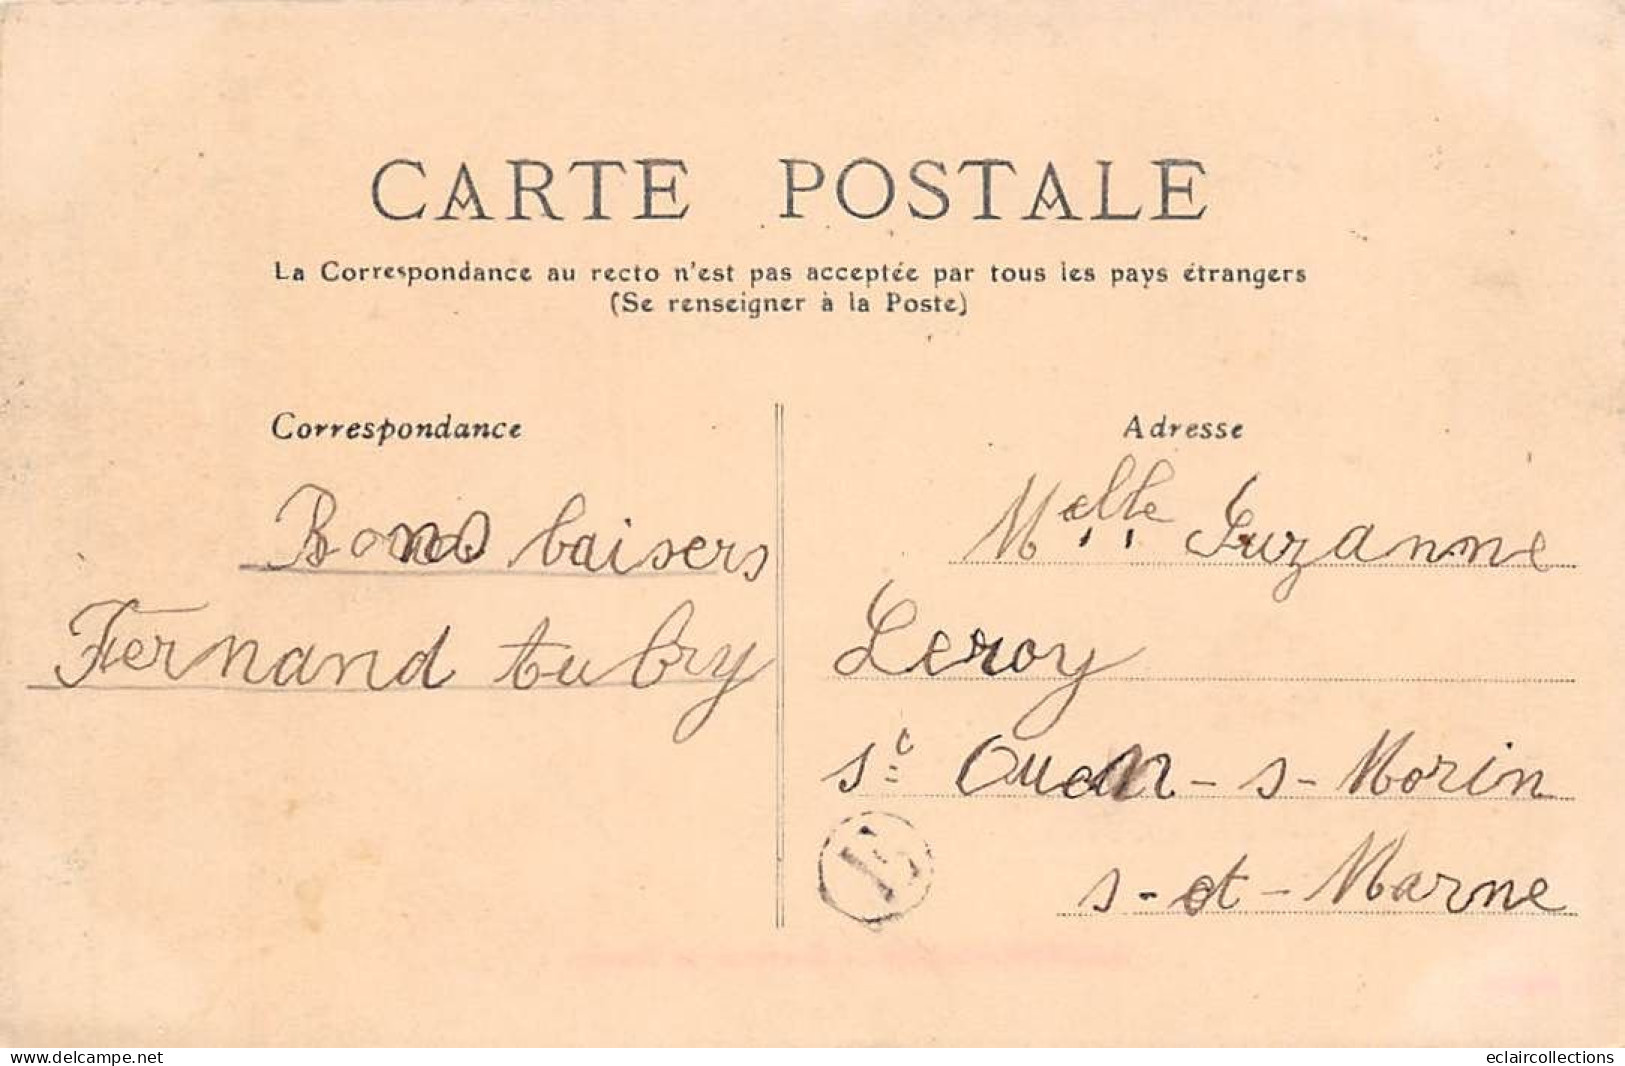 CARTE POSTALE
La Correspondance au recto n'est pas acceptée par tous les pays étrangers
(Se renseigner à la Poste)
Correspondance
Bons baisers
Fernand Aubry
Adresse
Melle Suzanne
Leroy
St Ouen-s-Morin
s-et-Marne
E
www.delcampe.net
eclaircollections